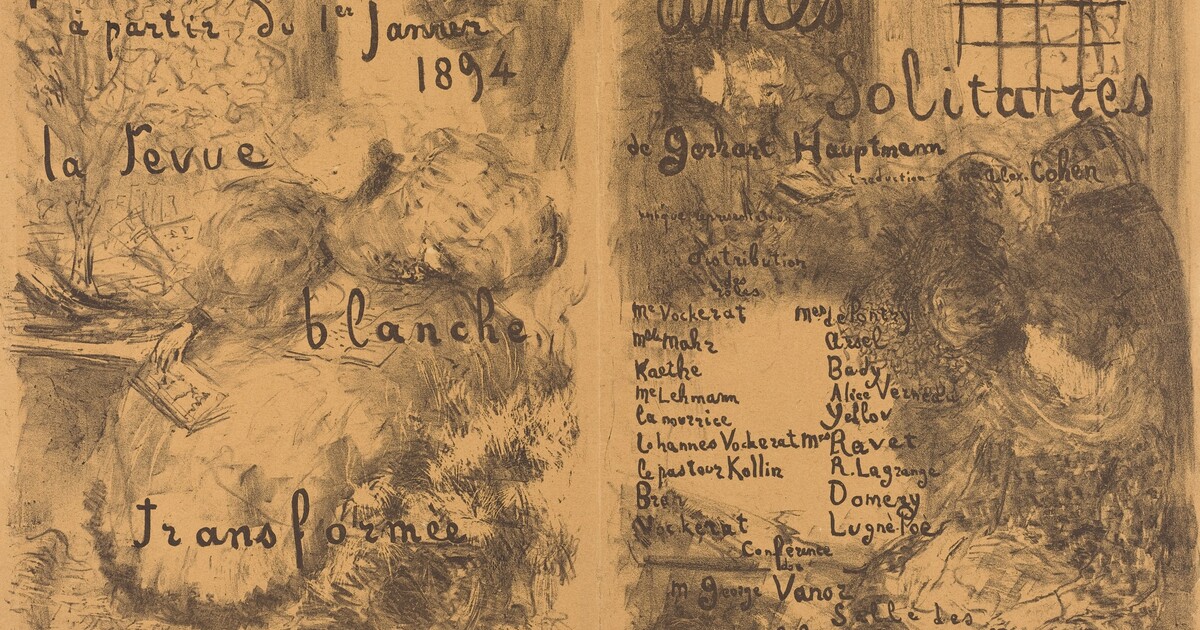 à partir du 1er Janvier
1894
la revue
blanche
transformée
âmes
Solitaires
de Gerhart Hauptmann
traduction de Mr alex. Cohen
unique représentation
distribution
des
rôles
Me Vockerat Mes de Pontry
Mlle Mahr Arsel
Kaethe Bady
Me Lehmann Alice Verneau
la nourrice Yellov
Iohannes Vockerat Mrs Ravet
le pasteur Kollin R. Lagrange
Bran Domeny
Vockerat Lugné Poe
Conférence
de
M george Vanor
Salle des